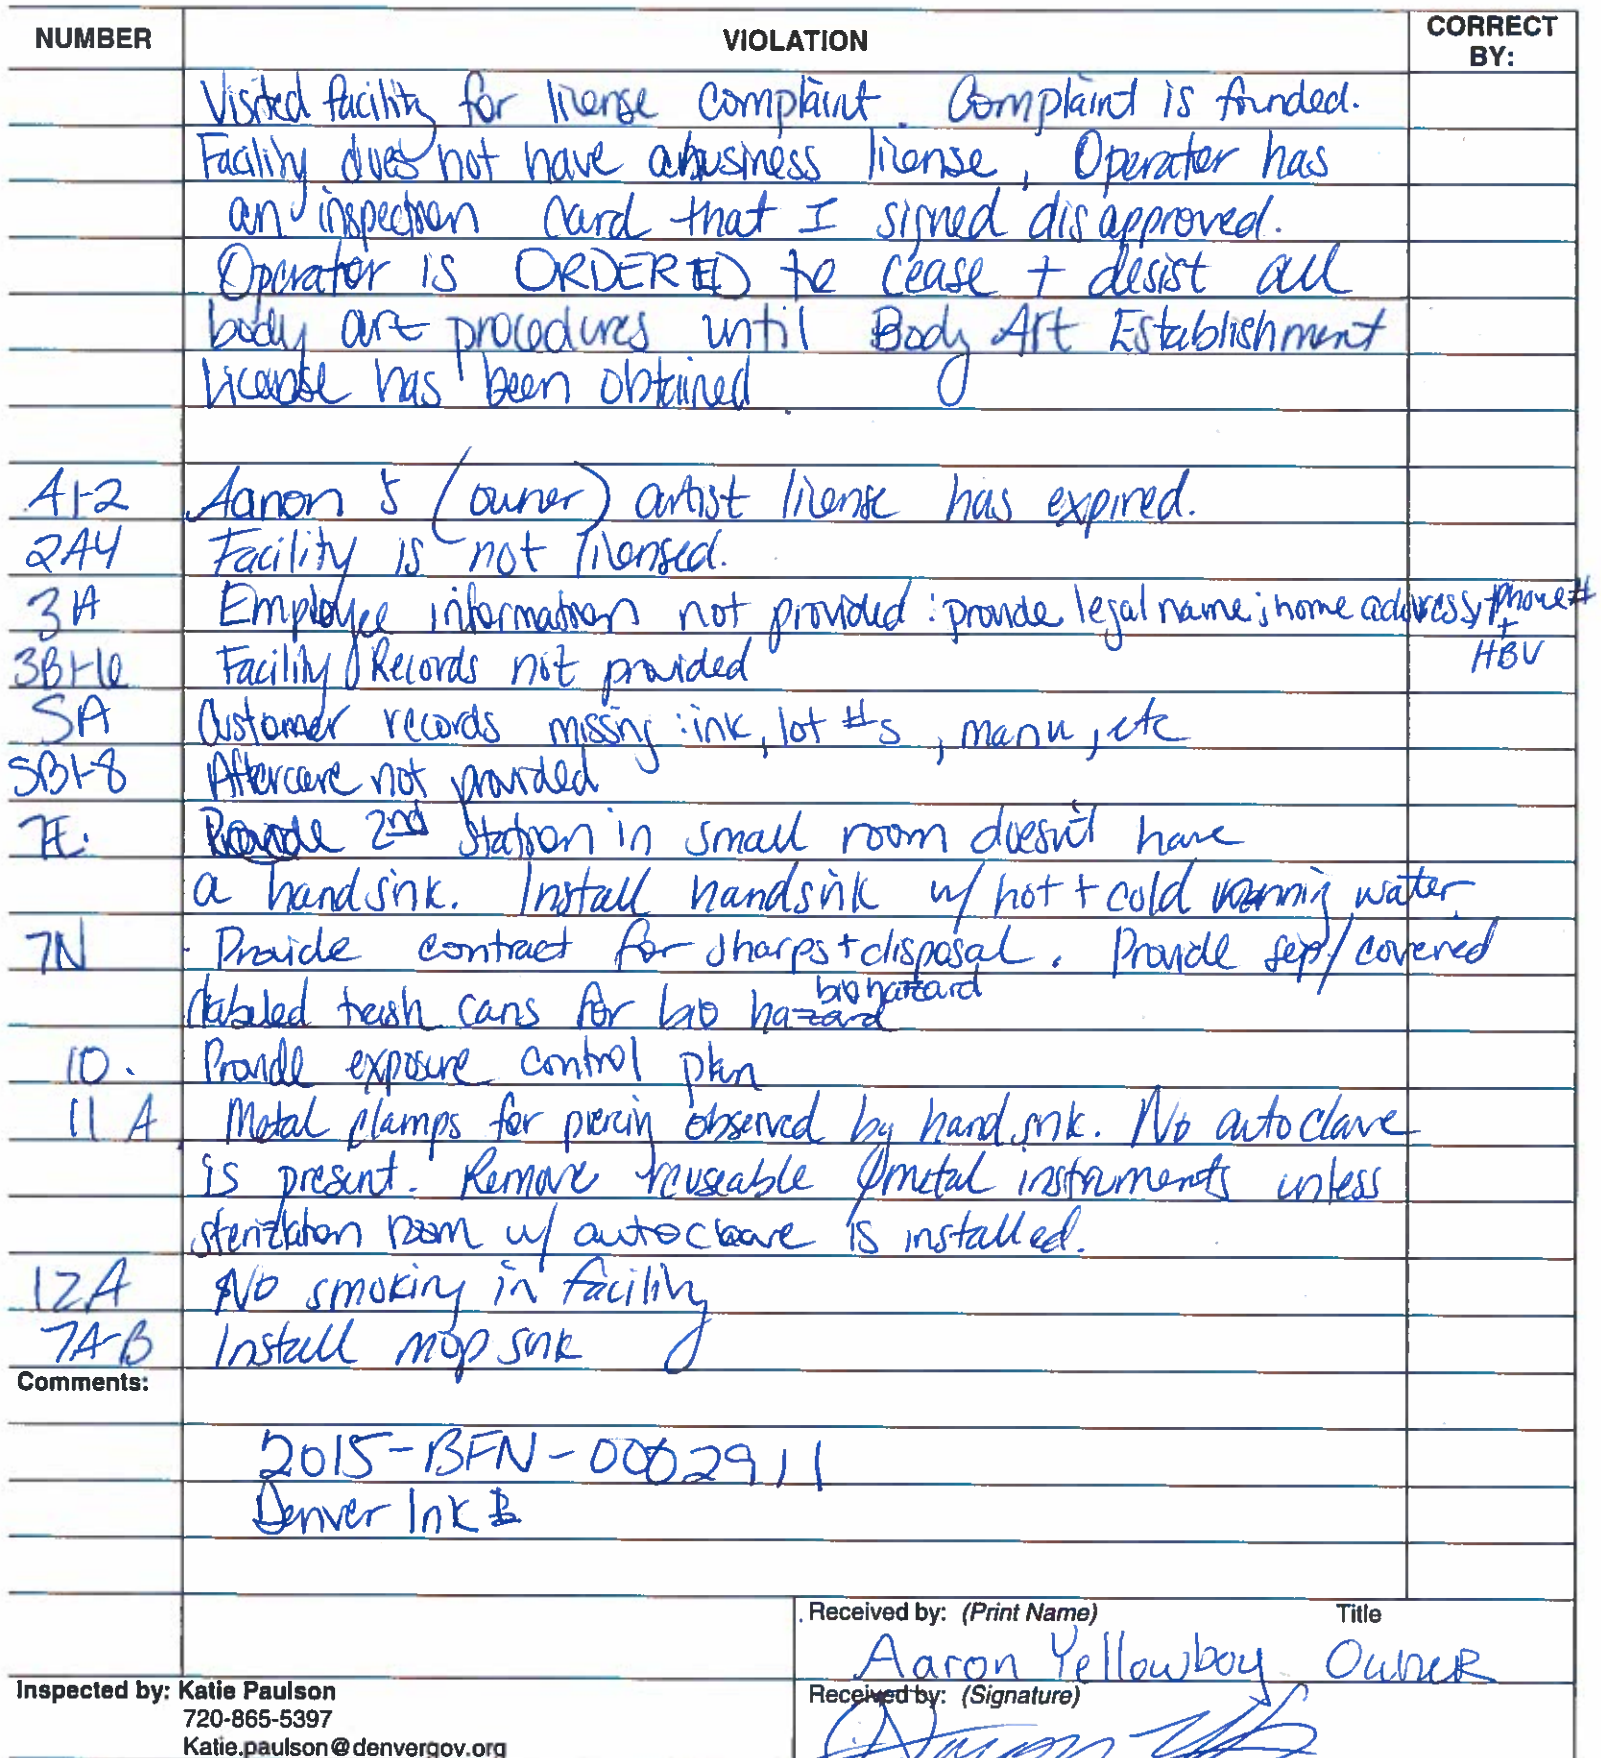 NUMBER VIOLATION CORRECT BY:
Visited facility for license complaint. Complaint is founded.
Facility does not have a business license, Operator has
an inspection card that I signed disapproved.
Operator is ORDERED to cease + desist all
body art procedures until Body Art Establishment
License has been obtained
(owner) artist license has expired.
2A4 Facility is not licensed.
3A Employee information not provided: provide legal name; home address, phone #
+ HBV
Facility Records not provided
5A Customer records missing: ink, lot #s, manu, etc
5B1-8 Aftercare not provided
7E. 2nd Station in small room doesn't have
a handsink. Install handsink w/ hot + cold running water
7N Provide contract for sharps + disposal. Provide sep/covered
labeled trash cans for bio hazard biohazard
10. Provide exposure control plan
11 A Metal clamps for piercing observed by hand sink. No autoclave
is present. Remove reuseable metal instruments unless
sterilization room w/ autoclave is installed.
12A No smoking in facility
7A-B Install mop sink
Comments:
2015-BFN-0002911
Denver Ink
Received by: (Print Name) Title
Aaron Yellowboy Owner
Inspected by: Katie Paulson
720-865-5397
Katie.paulson@denvergov.org
Received by: (Signature)